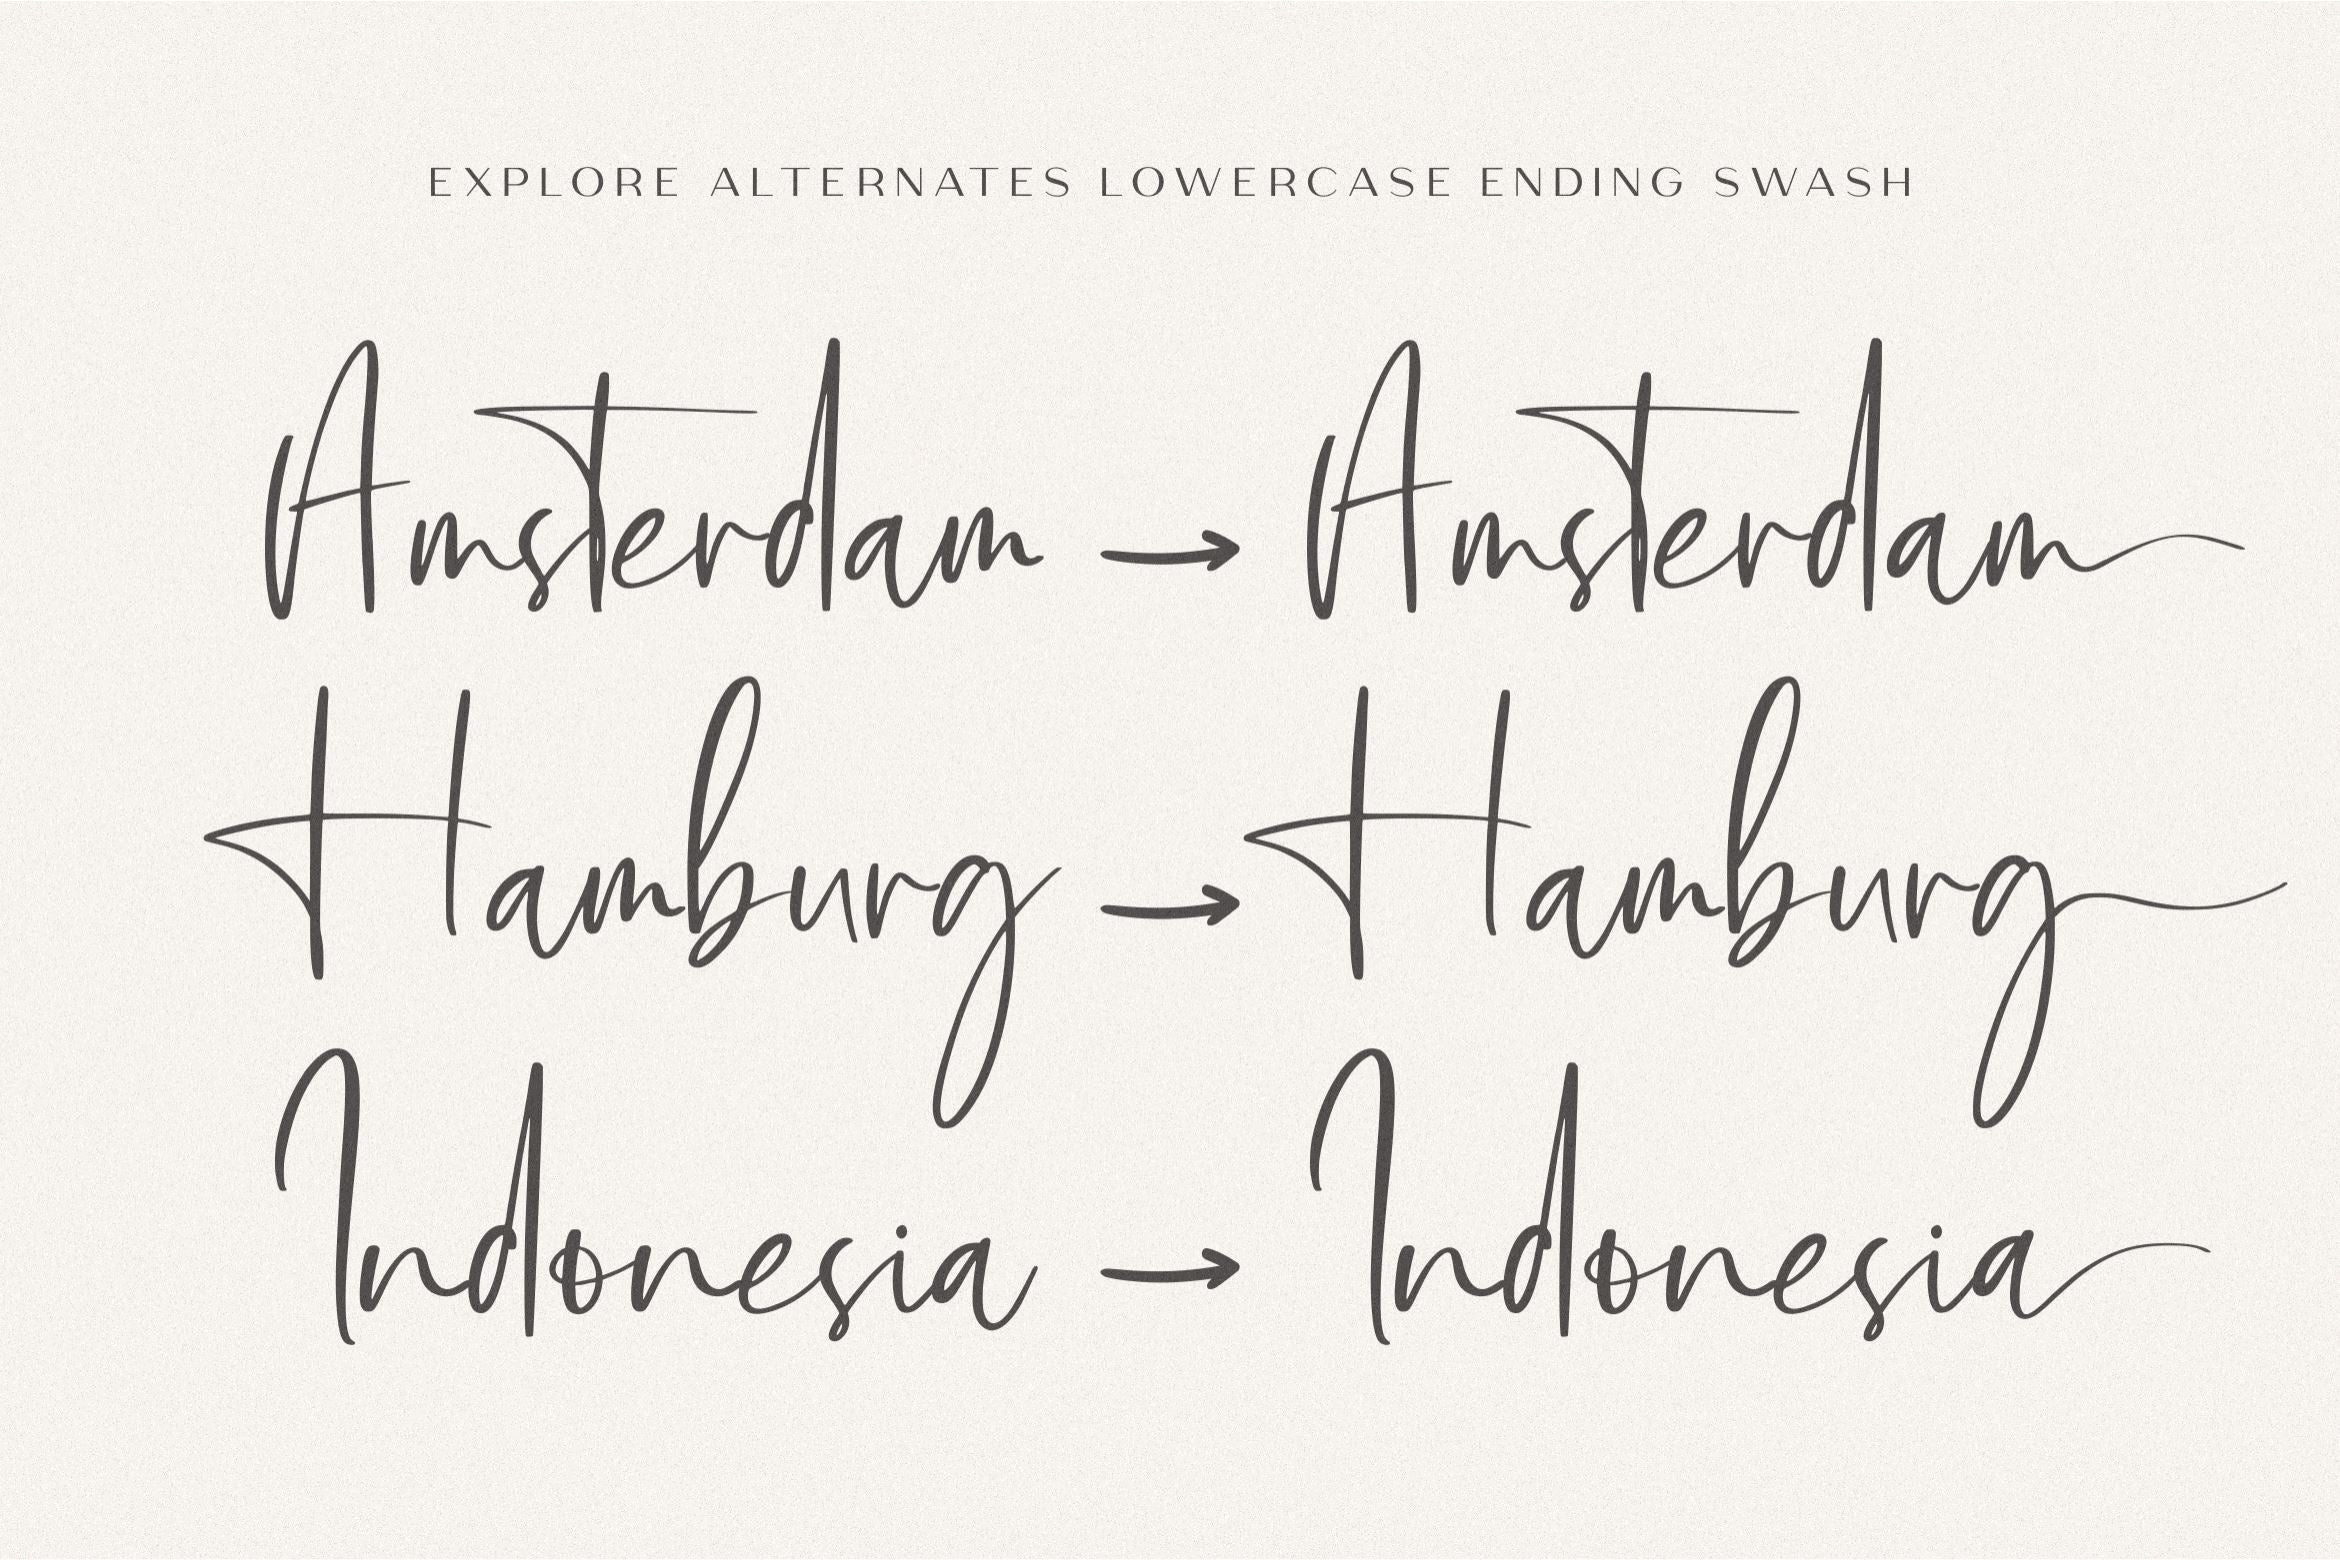 EXPLORE ALTERNATES LOWERCASE ENDING SWASH
Amsterdam → Amsterdam
Hamburg → Hamburg
Indonesia → Indonesia